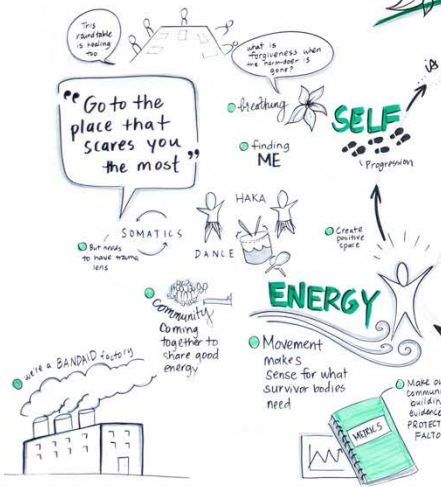 This
roundtable
is healing
too
what is
forgiveness when
the harm-doer is
gone?
"Go to the
place that
scares you
the most"
breathing
finding
ME
SELF
Progression
SOMATICS
But needs
to have trauma
lens
HAKA
DANCE
Create
positive
space
community
Coming
together to
share good
energy
ENERGY
Movement
makes
Sense for what
survivor bodies
need
we're a BANDAID factory
METRICS
Make ou
communi
buildin
evidence
PROTECT
FACTO